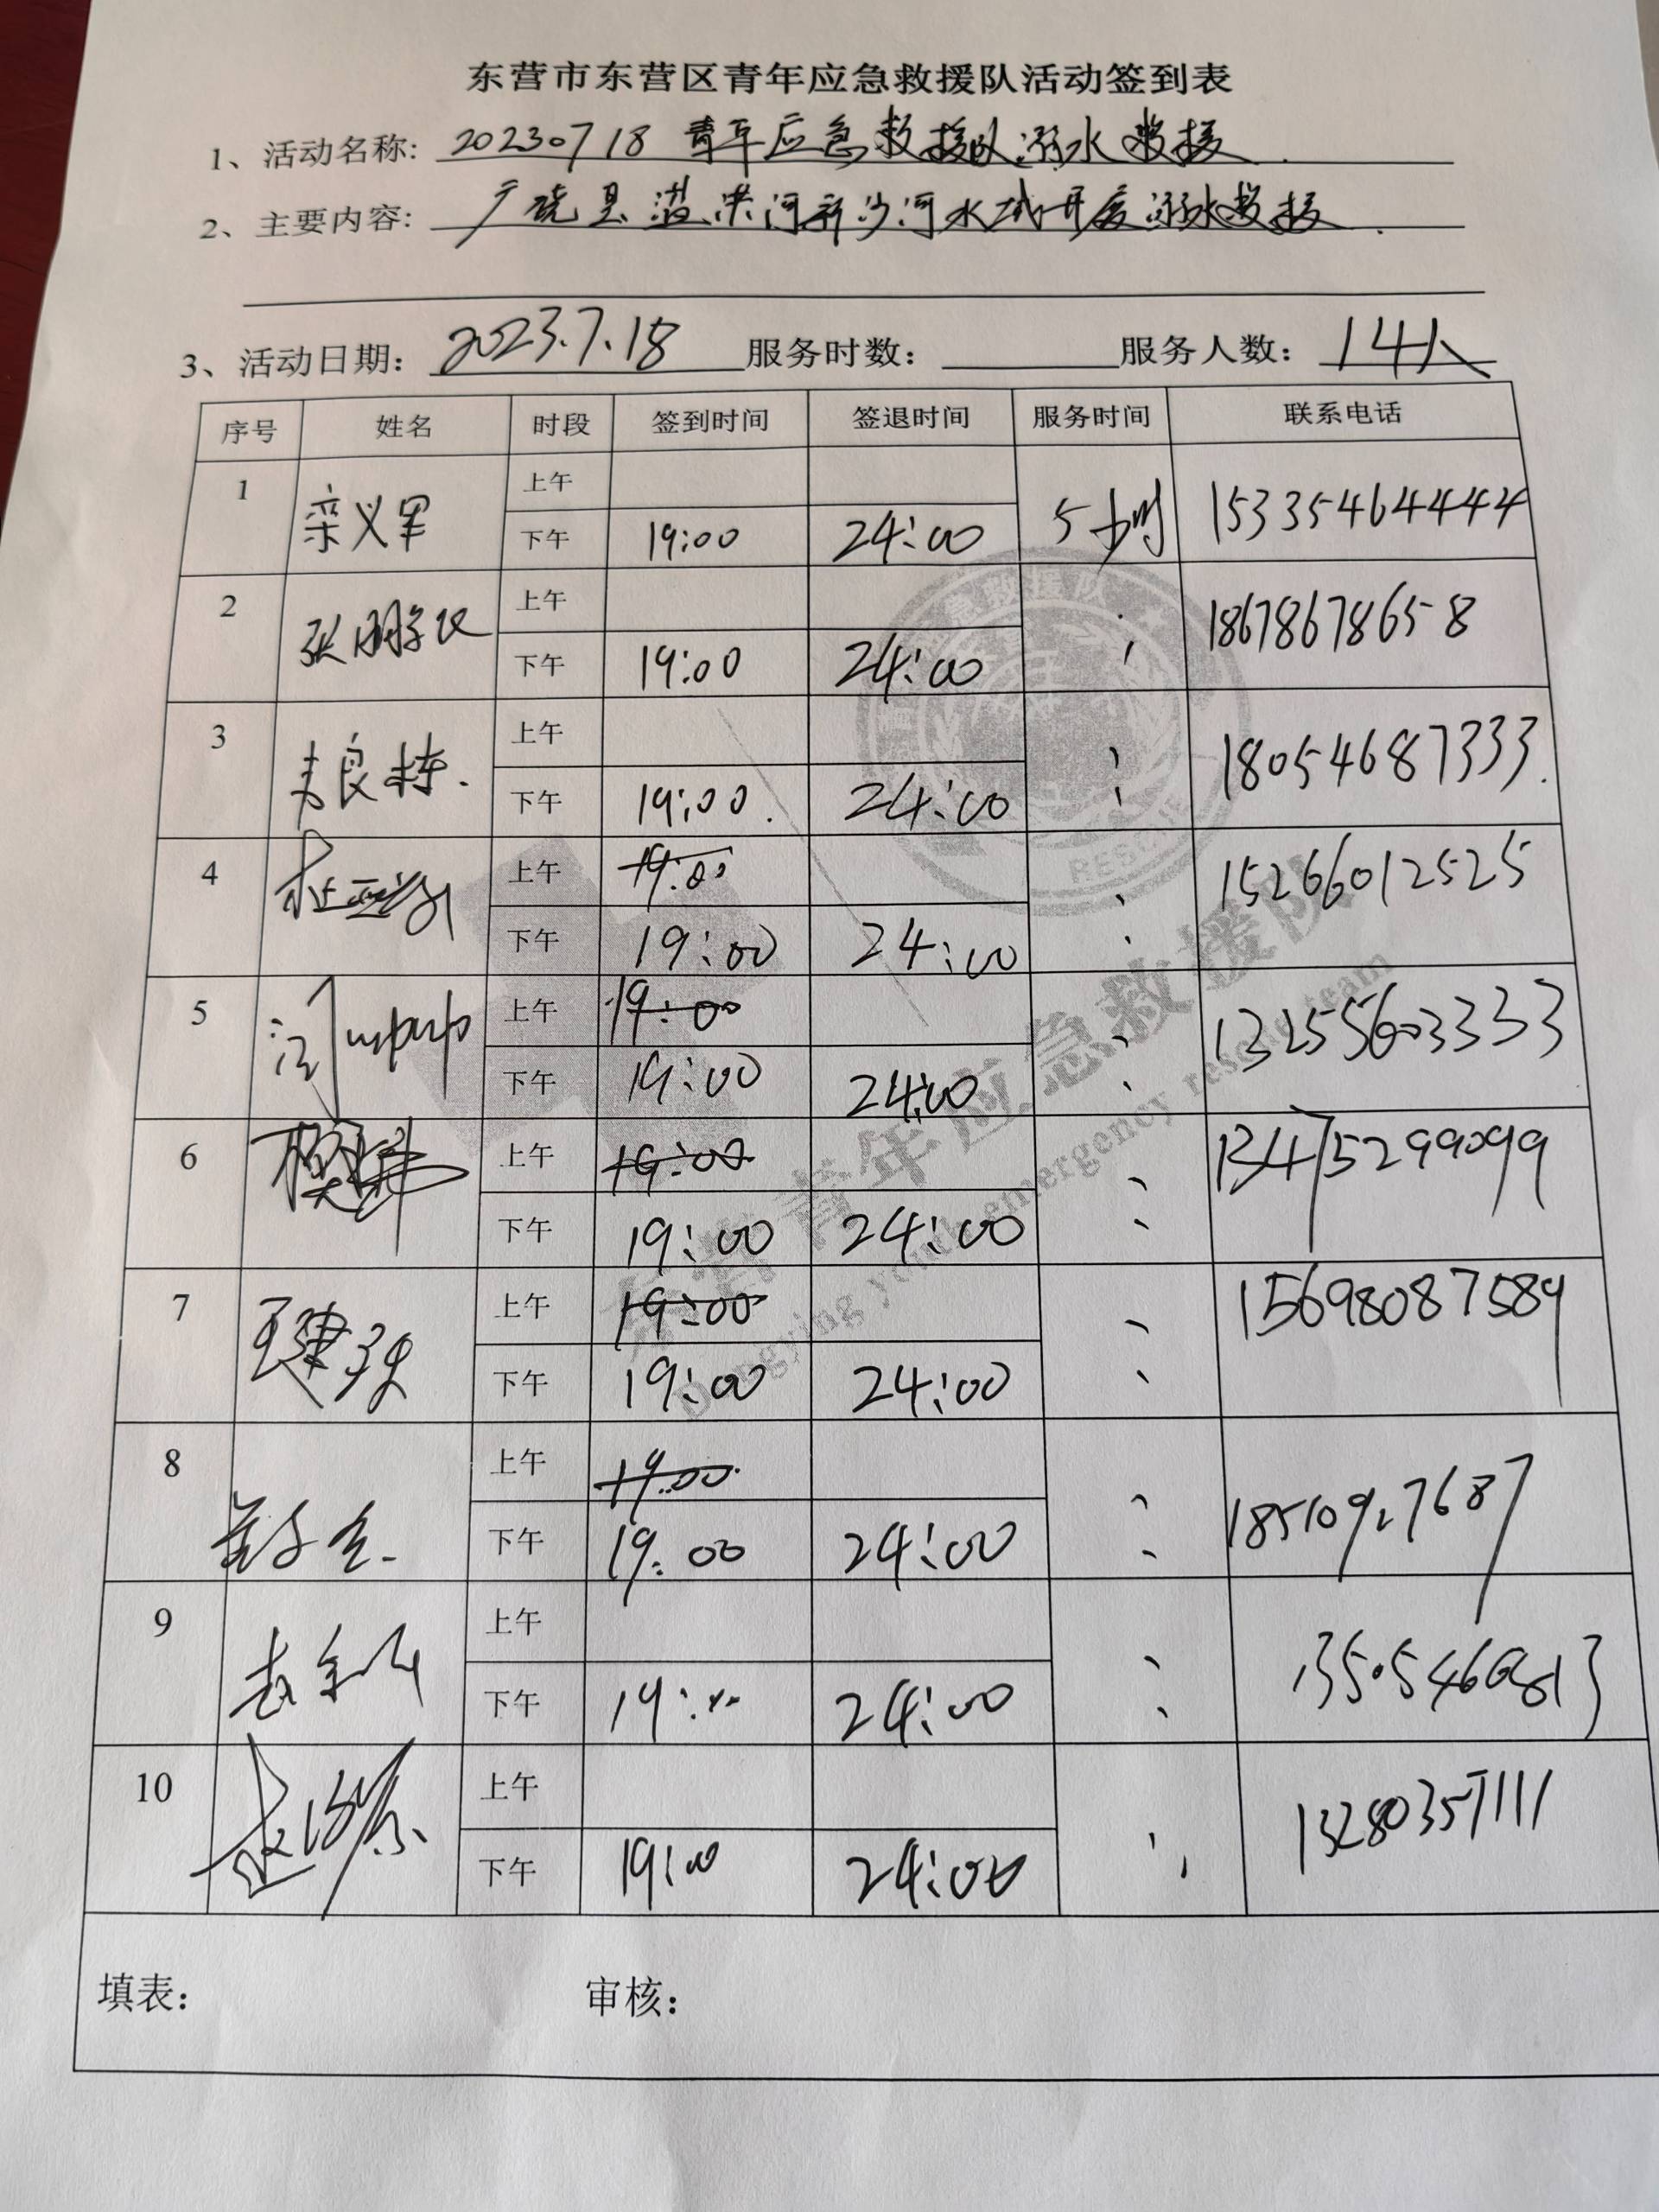 东营市东营区青年应急救援队活动签到表
1、活动名称: 20230718 青年应急救援队溺水救援
2、主要内容: 广饶县 河新沙河水域开展溺水救援
3、活动日期: 2023.7.18 服务时数: 服务人数: 14人
序号 姓名 时段 签到时间 签退时间 服务时间 联系电话
1 栾义军 上午
下午 19:00 24:00 5小时 15335464444
2 张鹏 上午
下午 19:00 24:00 18678678658
3 良栋 上午
下午 19:00 24:00 18054687333
4 上午 19:00
下午 19:00 24:00 15266012525
5 上午 19:00
下午 19:00 24:00 13255603333
6 上午 19:00
下午 19:00 24:00 13475299099
7 王建 上午 19:00
下午 19:00 24:00 15698087589
8 上午 19:00
下午 19:00 24:00
9 赵 上午
下午 24:00
10 赵 上午
下午 19:00 24:00 13280357111
填表: 审核:
东营青年应急救援队
Dongying youth emergency rescue team